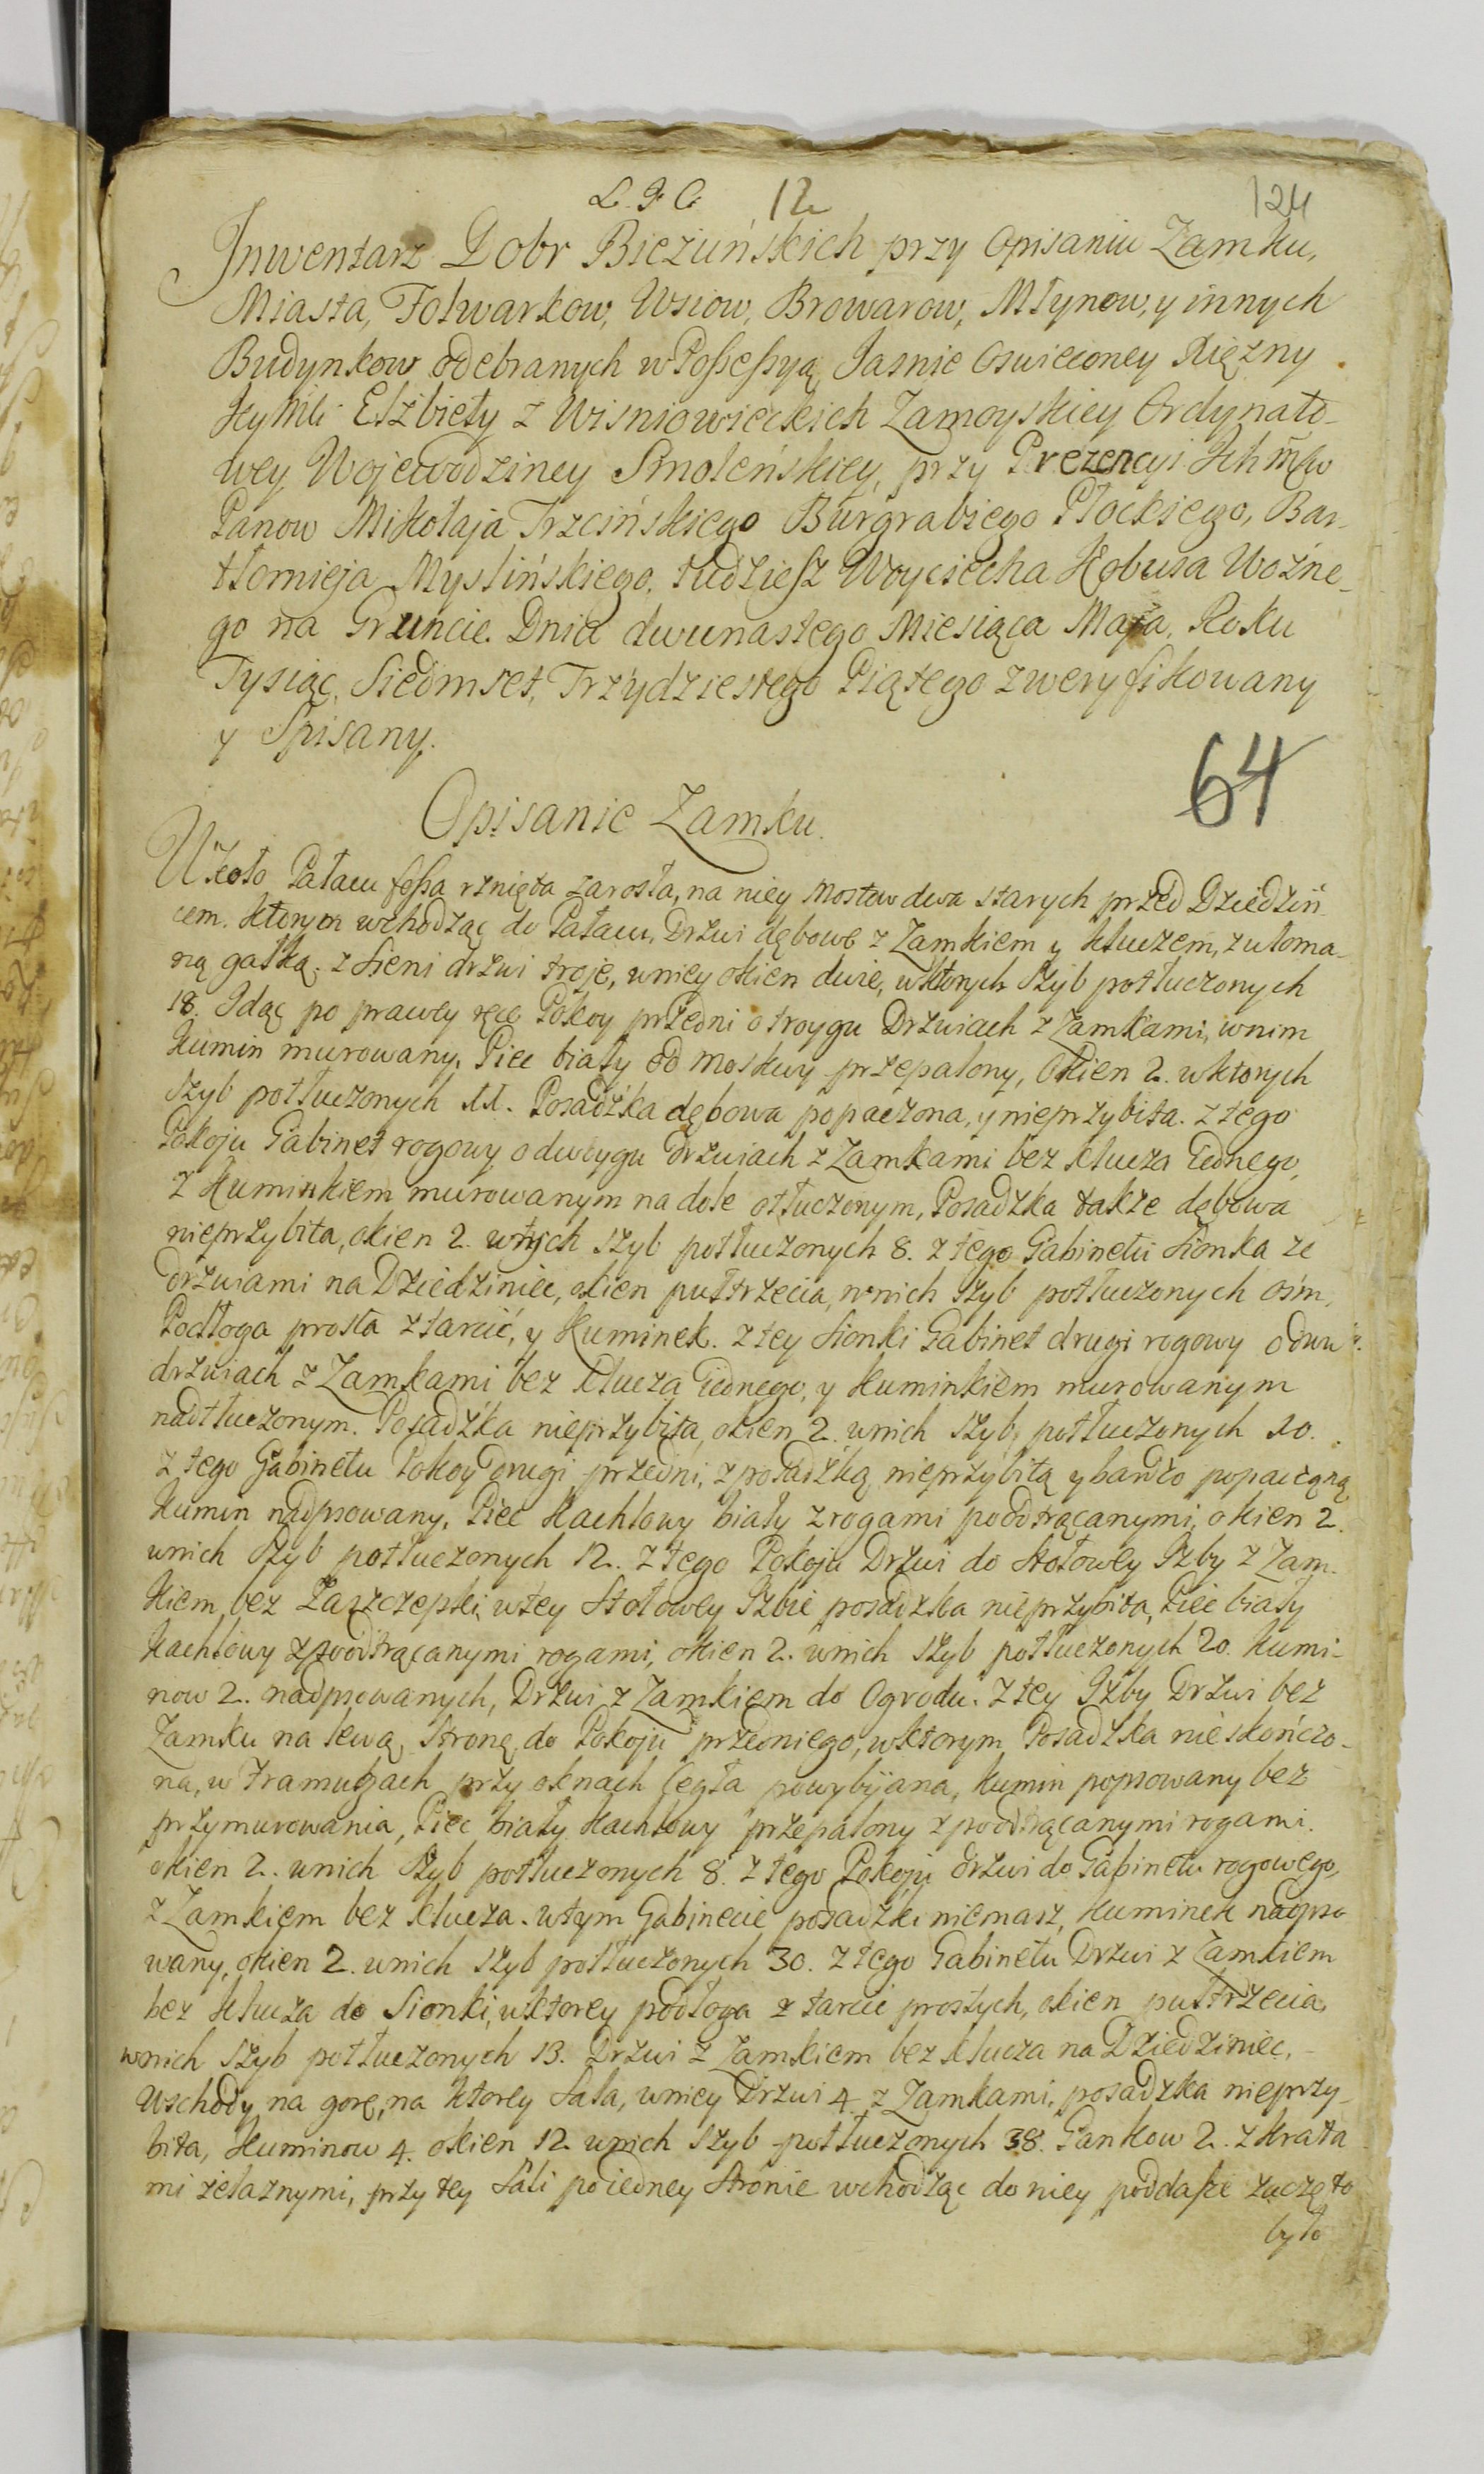 L. J. C. 12 124
Inwentarz Dobr Bieżuńskich przy Opisaniu Zamku,
Miasta, Folwarkow, Wsiow, Browarow, Młynow, y innych
Budynkow odebranych w Possessyą Jasnie Oswieconey Xiężny
Jeymśći Elżbiety z Wisniowieckich Zamoyskiey Ordynato-
wey Wojewodziney Smoleńskiey, przy Prezencyi Ichmćiw
Panow Mikołaja Trzcińskiego Burgrabiego Płockiego, Bar-
tłomieja Myslińskiego, tudziesz Woyciecha Kobusa Woźne-
go na Gruncie. Dnia dwunastego Miesiąca Maja, Roku
Tysiąc, Siedmset, Trzydziestego Piątego zweryfikowany
y Spisany.
64
Opisanie Zamku.
Wkoło Pałacu fossa rznięta zarosła, na niey Mostow dwa starych przed Dziedziń-
cem. Ktorym wchodząc do Pałacu, Drzwi dębowe z Zamkiem y kluczem, z ułoma-
ną gałką. z Sieni drzwi troje, wniey okien dwie, w ktorych Szyb potłuczonych
18. Idąc po prawey ręce Pokoy przedni o troygu Drzwiach z Zamkami, wnim
Kumin murowany, Piec biały od Moskwy przepalony, Okien 2. wktorych
Szyb potłuczonych 11. Posadzka dębowa popaczona, y nieprzybita. z tego
Pokoju Gabinet rogowy o dwoygu drzwiach z Zamkami bez Klucza iednego,
z Kuminkiem murowanym na dole otłuczonym, Posadzka także dębowa
nieprzybita, okien 2. wtych szyb potłuczonych 8. z tego Gabinetu Sionka ze
drzwiami na Dziedziniec, okien pułtrzecia, wnich szyb potłuczonych ośm,
Podłoga prosta z tarcic, y Kuminek. z tey Sionki Gabinet drugi rogowy o dwu
drzwiach z Zamkami bez Klucza iednego, y Kuminkiem murowanym
nadtłuczonym. Posadzka nieprzybita, okien 2. wnich szyb potłuczonych 10.
z tego Gabinetu Pokoy drugi przedni, z posadzką nieprzybitą y bardzo popaczoną
Kumin nadpsowany, Piec Kachlowy biały z rogami poodtrącanymi, okien 2.
wnich Szyb potłuczonych 12. z tego Pokoju Drzwi do Stołowey Izby z Zam-
kiem bez Zaszczepki, wtey Stołowey Izbie posadzka nieprzybita, Piec biały
Kachlowy z poodtrącanymi rogami, okien 2. wnich szyb potłuczonych 20. Kumi-
now 2. nadpsowanych, Drzwi z Zamkiem do Ogrodu. z tey Izby Drzwi bez
Zamku na lewą stronę do Pokoju przedniego, wktorym Posadzka nieskończo-
na, w Framugach przy oknach Cegła powybijana, Kumin popsowany bez
przymurowania, Piec biały Kachlowy przepalony z poodtrącanymi rogami.
okien 2. wnich Szyb potłuczonych 8. z tego Pokoju drzwi do Gabinetu rogowego,
z Zamkiem bez klucza. wtym Gabinecie posadzki niemasz, Kuminek nadpso-
wany, okien 2. wnich szyb potłuczonych 30. z tego Gabinetu Drzwi z Zamkiem
bez Klucza do Sionki, wktorey podłoga z tarcic prostych, okien pułtrzecia,
wnich szyb potłuczonych 13. Drzwi z Zamkiem bez klucza na Dziedziniec, -
Wschody na gorę, na ktorey Sala, wniey Drzwi 4. z Zamkami, posadzka nieprzy-
bita, Kuminow 4. okien 12. wnich szyb potłuczonych 38. Gankow 2. z Krata-
mi żelaznymi, przy tey Sali po iedney stronie wchodząc do niey poddasze zaczęto
było